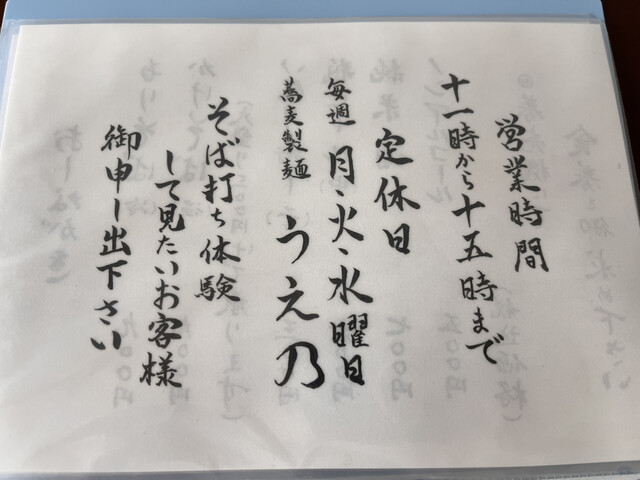 営業時間
十一時から十五時まで
定休日
毎週 月、火、水曜日
蕎麦製麺 うえ乃
そば打ち体験
して見たいお客様
御申し出下さい